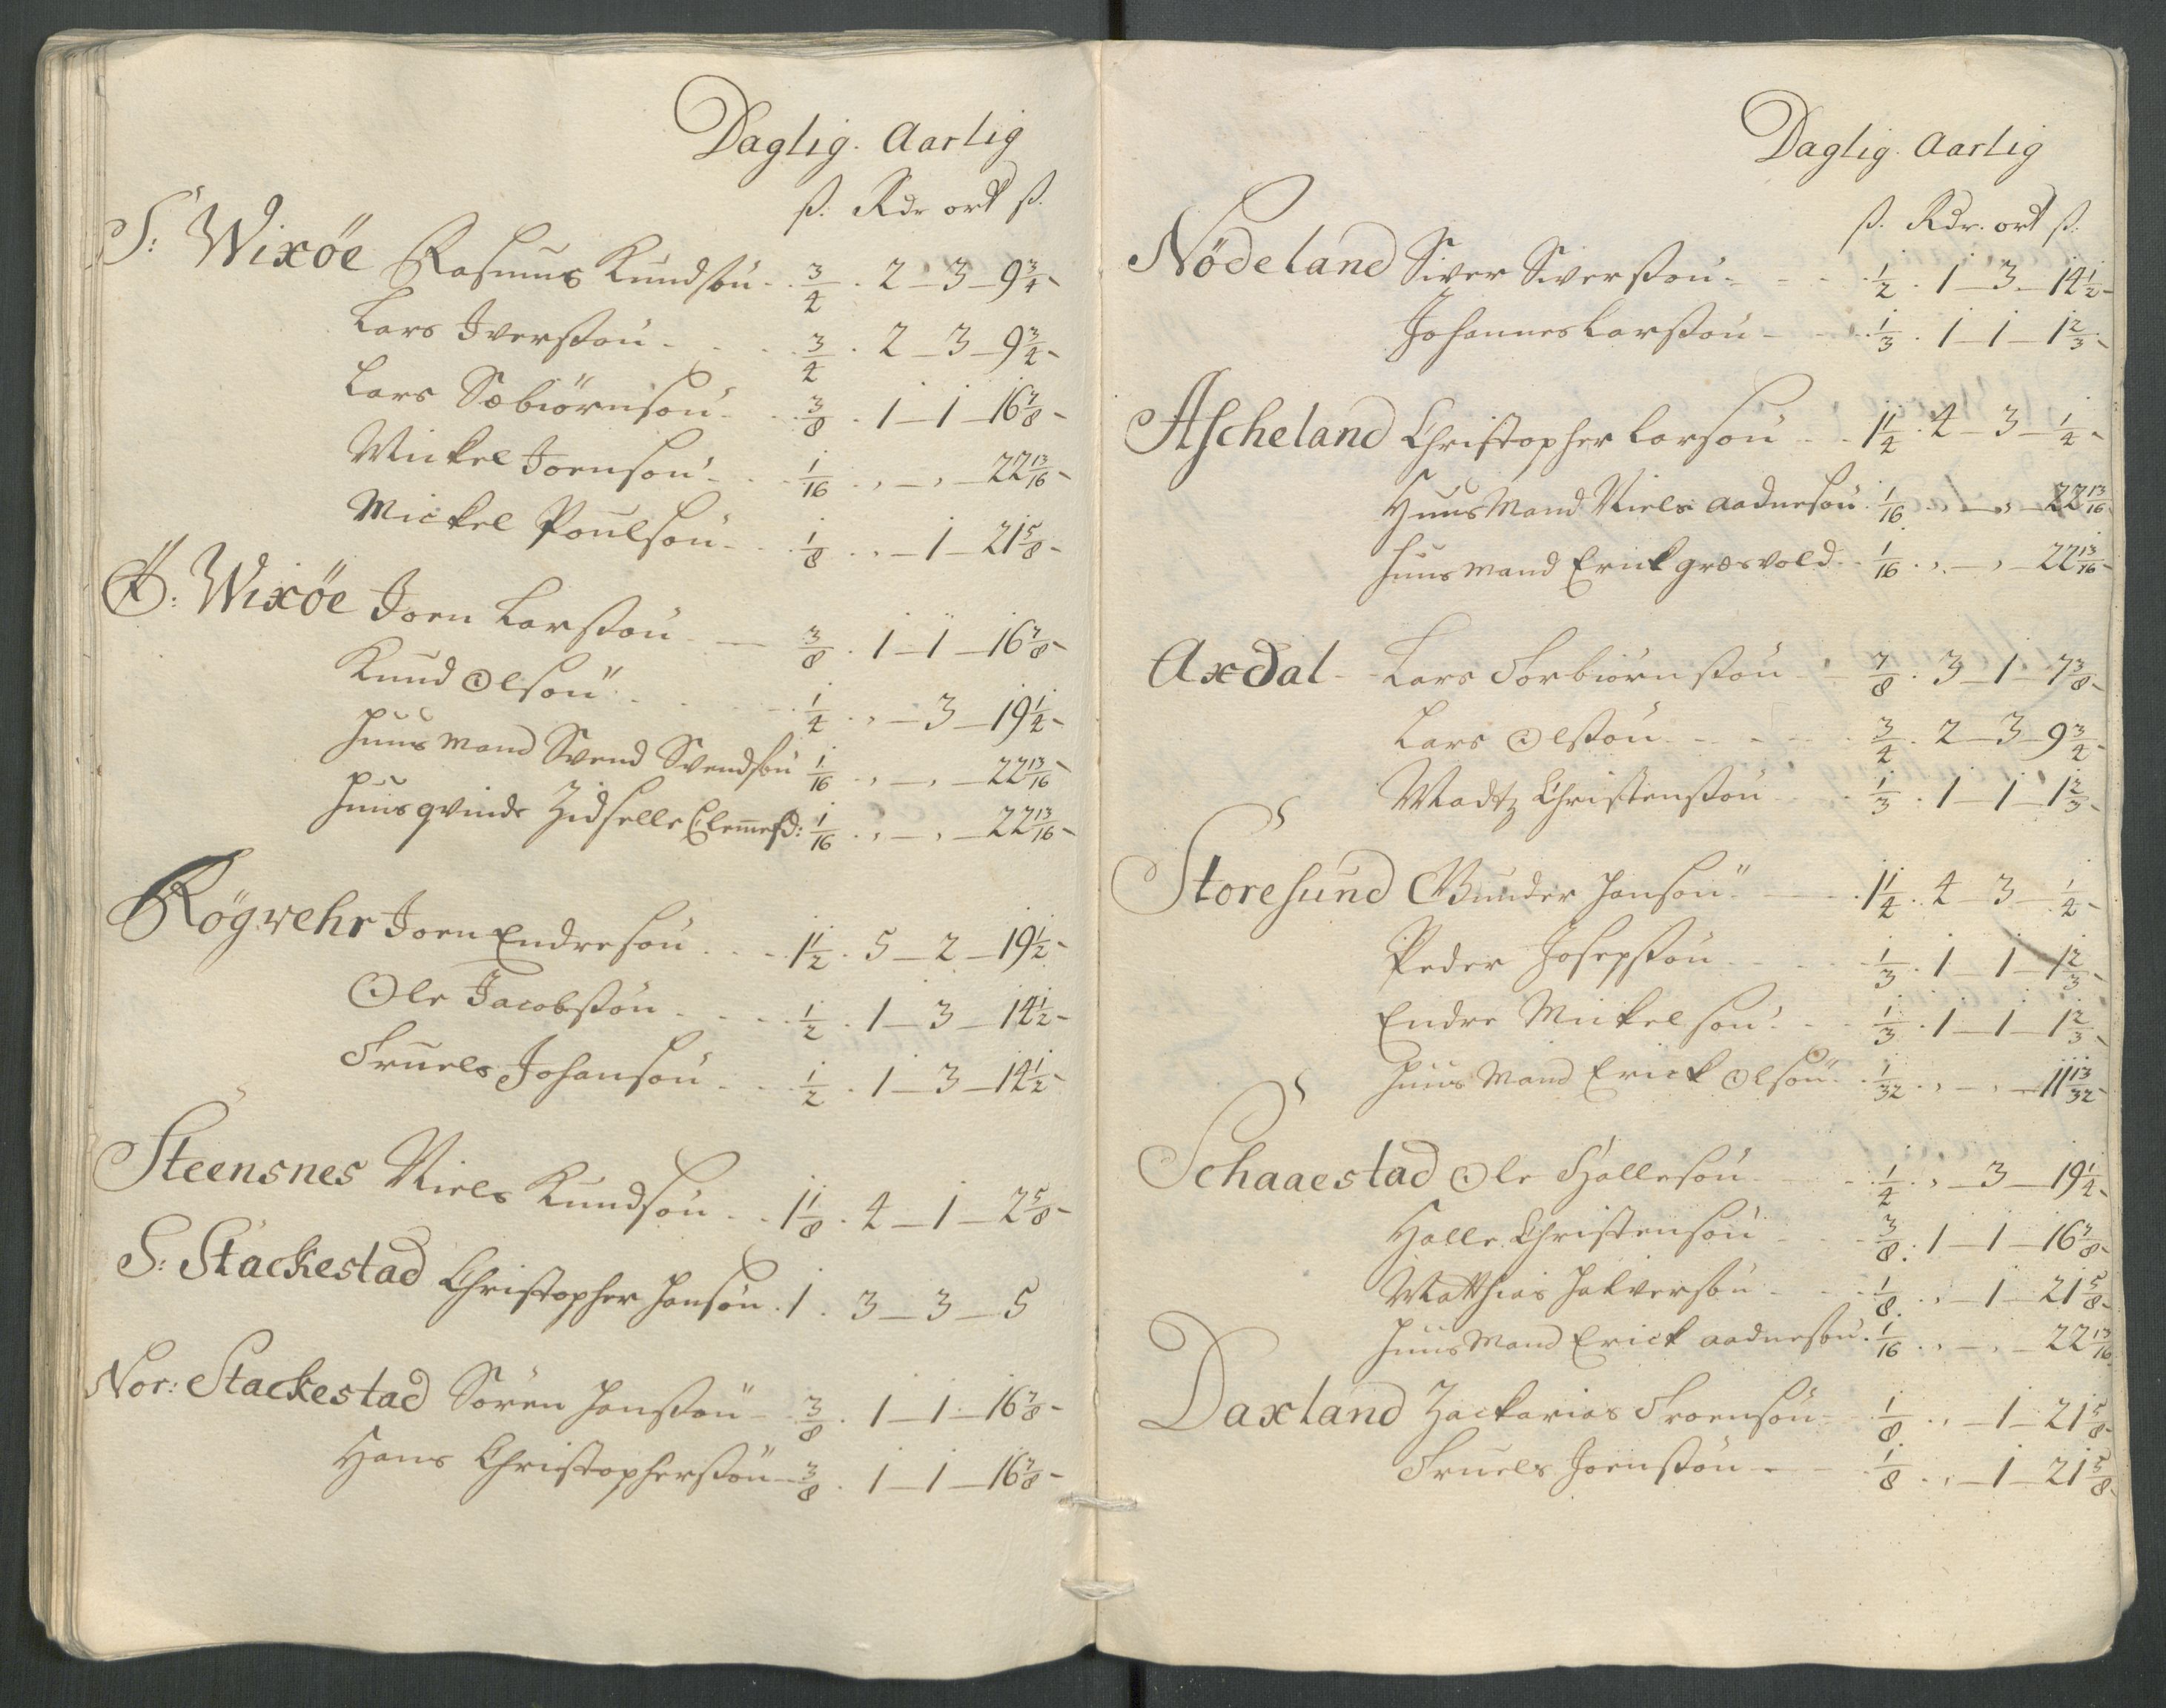 Daglig. Aarlig
ß. Rdr ort ß.
S: Wixöe Rasmus Knudsön - 3/4 . 2 - 3 - 9 3/4 -
Lars Iverssön - 3/4 . 2 - 3 - 9 3/4 -
Lars Sæbiörnsön - 3/8 . 1 - 1 - 16 7/8 -
Mickel Joensön - 1/16 . , - , - 22 13/16 -
Mickel Poulsön - 1/8 . , - 1 - 21 5/8 -
Ö: Wixöe Joen Larssön - 3/8 . 1 - 1 - 16 7/8 -
Knud Olsön - 1/4 . , - 3 - 19 1/4 -
huus Mand Svend Svendsön 1/16 . , - , - 22 13/16 -
huus qvinde Zidselle Clemesd: 1/16 . , - , - 22 13/16 -
Rögwehr Joen Endresön - 1 1/2 . 5 - 2 - 19 1/2 -
Ole Jacobssön - 1/2 . 1 - 3 - 14 1/2 -
Truels Johansön - 1/2 . 1 - 3 - 14 1/2 -
Steensnes Niels Knudsön - 1 1/8 . 4 - 1 - 2 5/8 -
S: Stackestad Christopher Hansön . 1 . 3 - 3 - 5
Nor: Stackestad Sören Hanssön - 3/8 . 1 - 1 - 16 7/8 -
Hans Christopherssön - 3/8 . 1 - 1 - 16 7/8 -
Daglig. Aarlig
ß. Rdr. ort ß.
Nödeland Siver Siverssön - 1/2 . 1 - 3 - 14 1/2 -
Johannes Larssön - 1/3 . 1 - 1 - 1 2/3 -
Ascheland Christopher Larsön - 1 1/4 . 4 - 3 - 1/4 -
Huus Mand Niels Aadnesön 1/16 . , - , - 22 13/16 -
huus mand Erick græsvold - 1/16 . , - , - 22 13/16 -
Axdal - Lars Torbiörnssön - 7/8 . 3 - 1 - 7 3/8 -
Lars Olssön - 3/4 . 2 - 3 - 9 3/4 -
Madtz Christenssön - 1/3 . 1 - 1 - 1 2/3 -
Storesund Gunder Hansön - 1 1/4 . 4 - 3 - 1/4 -
Peder Josepssön - 1/3 . 1 - 1 - 1 2/3 -
Endre Mickelsön - 1/3 . 1 - 1 - 1 2/3 -
huus Mand Erick Olsön - 1/32 . , - , - 11 13/32 -
Schaaestad Ole Hallesön - 1/4 . , - 3 - 19 1/4 -
Halle Christensön - 3/8 . 1 - 1 - 16 7/8 -
Matthias Halversön - 1/8 . , - 1 - 21 5/8 -
huus Mand Erick Aadnesön . 1/16 . , - , - 22 13/16
Daxland Zackarias Troensön - 1/8 . , - 1 - 21 5/8 -
Truels Joenssön - 1/8 . , - 1 - 21 5/8 -